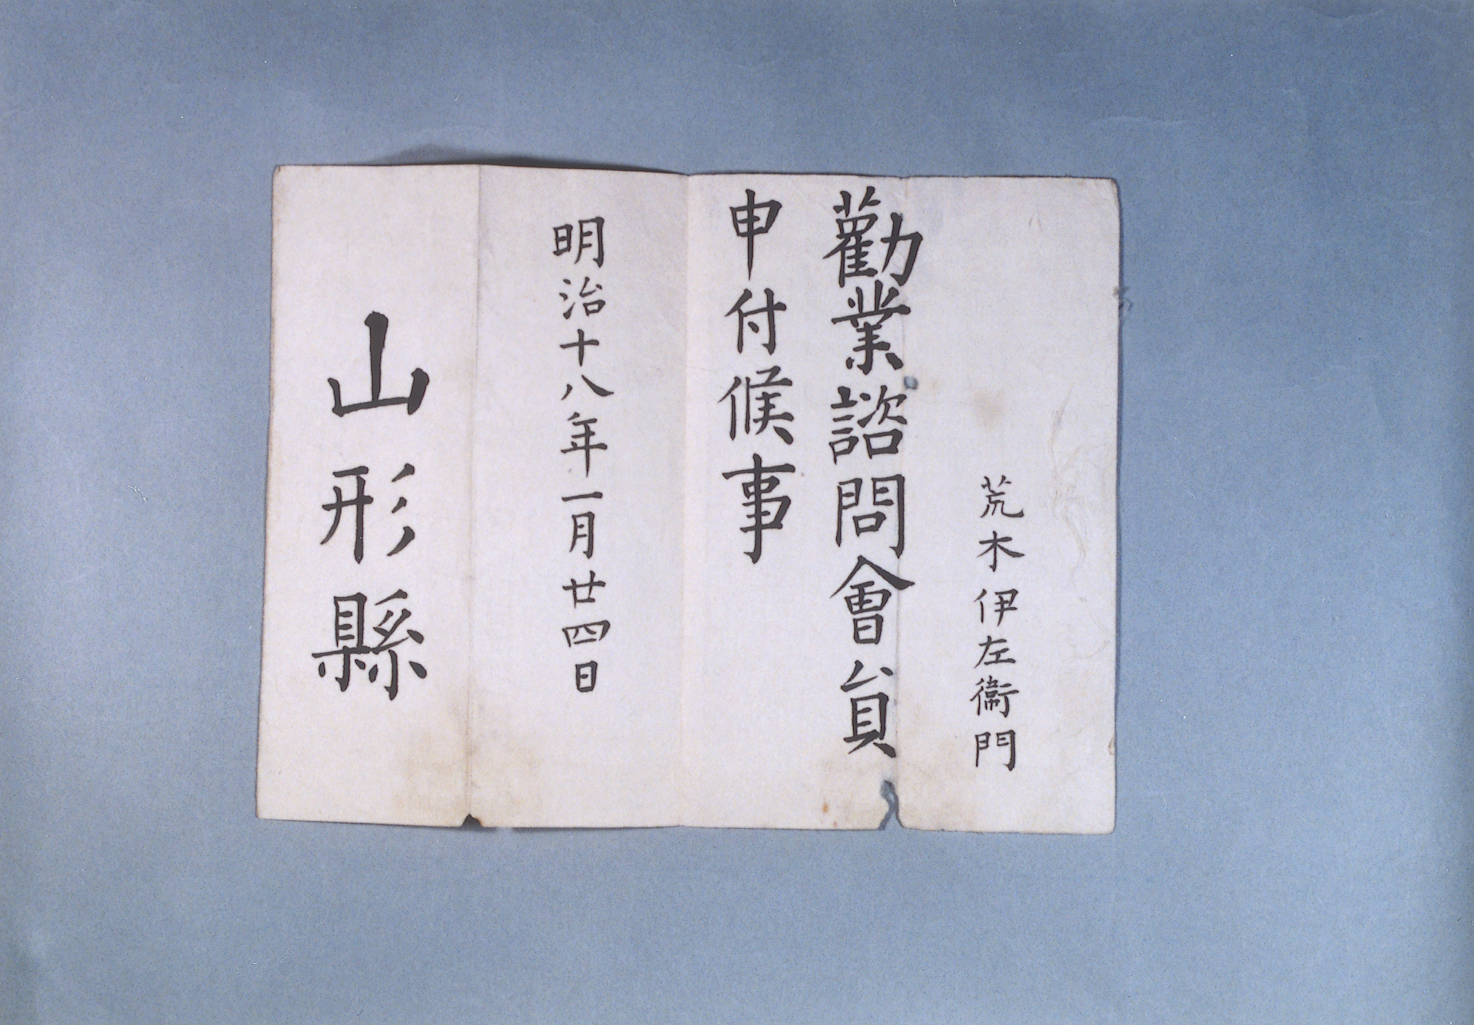 荒木伊左衞門
勸業諮問會員
申付候事
明治十八年一月廿四日
山形縣